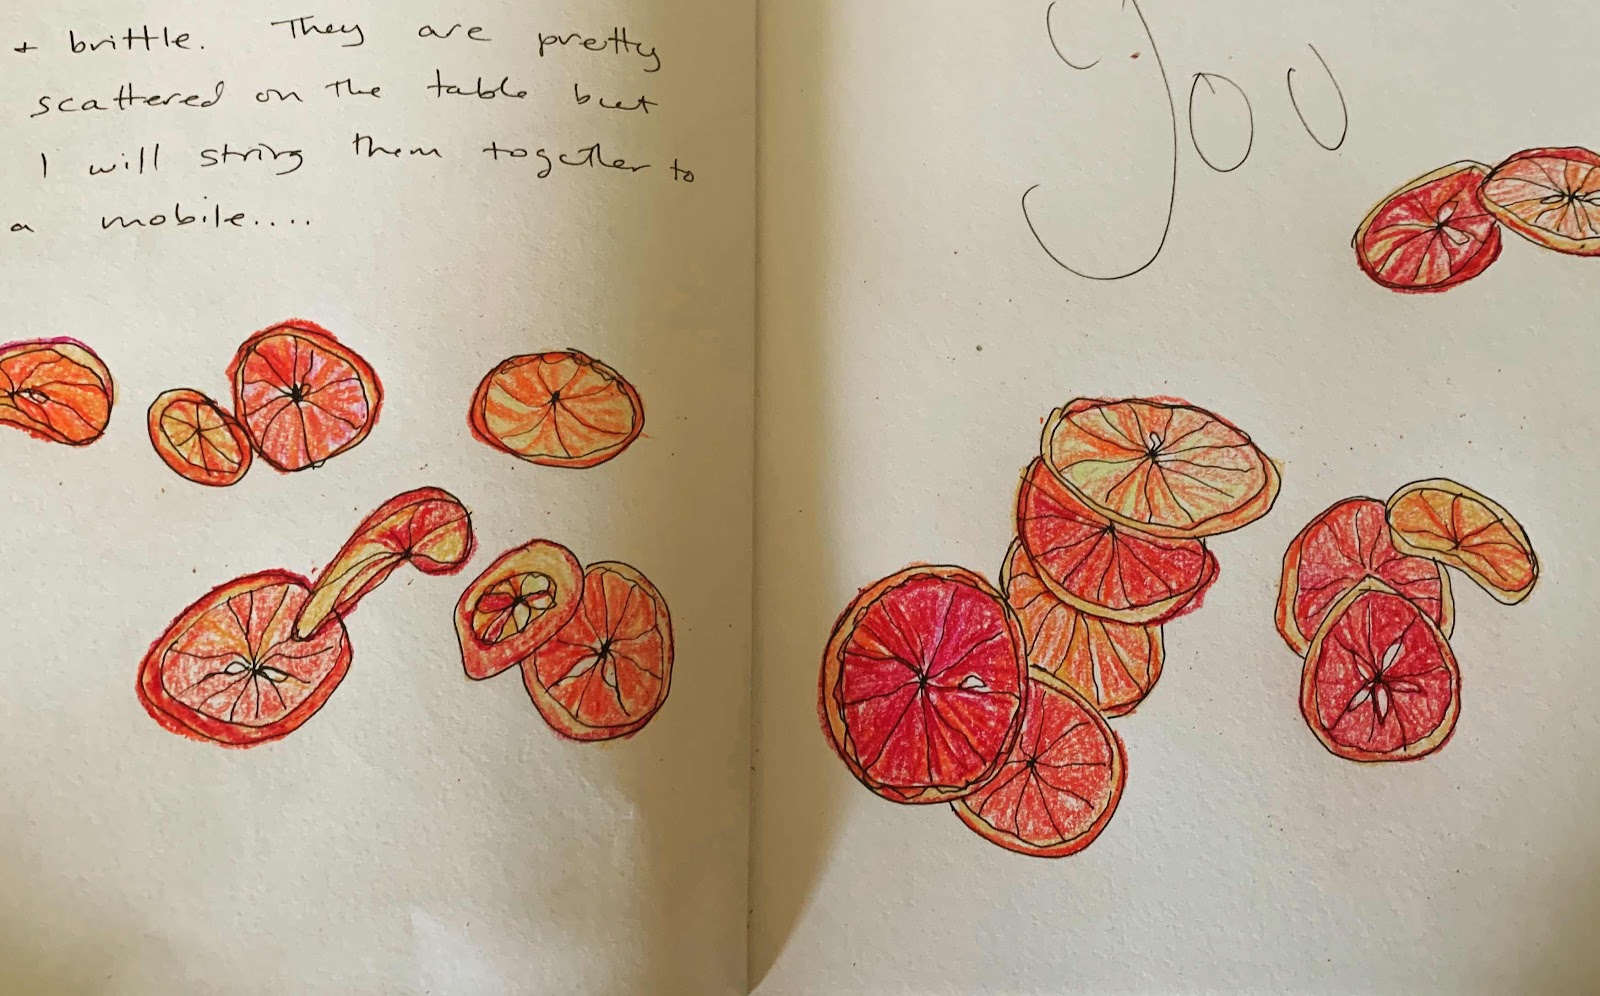 + brittle. They are pretty
scattered on the table but
I will string them together to
a mobile....
You